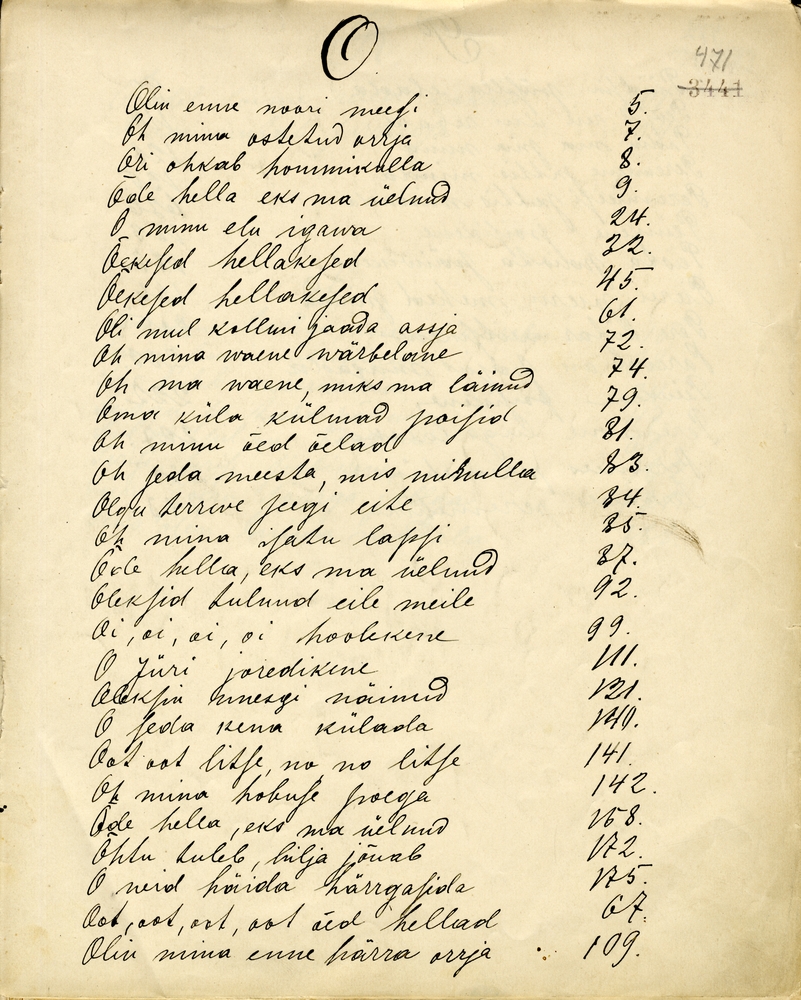 O
471
3441
Olin enne noori meesi 5.
Oh mina ostetud orrja 7.
Ori ohkab hommikulla 8.
Õde hella eks ma üelnud 9.
O minu elu igawa 24.
Õekesed hellakesed 32.
Õekesed hellakesed 45.
Oli mul kolluri jaada assja 61.
Oh mina waene wärbelane 72.
Oh ma waene, miks ma läinud 74.
Oma küla külmad poisid 79.
Oh minu õed õelad 81.
Oh seda meesta, mis minulla 83.
Olgu terrwe seegi eite 84.
Oh mina isatu lapsi 85.
Õde hella, eks ma üelnud 87.
Oleksid tulnud eile meile 92.
Oi, oi, oi, oi hoolekene 99.
O Jüri joredikene 111.
Oleksin unesgi näinud 121.
O seda kena külada 140.
Oot oot litse, no no litse 141.
Oh mina hobuse poega 142.
Õde hella, eks ma üelnud 158.
Õhtu tuleb, hilja jõuab 172.
O neid häida härrgasida 175.
Oot, oot, oot, oot õed hellad 67.
Olin mina enne härra orrja 109.